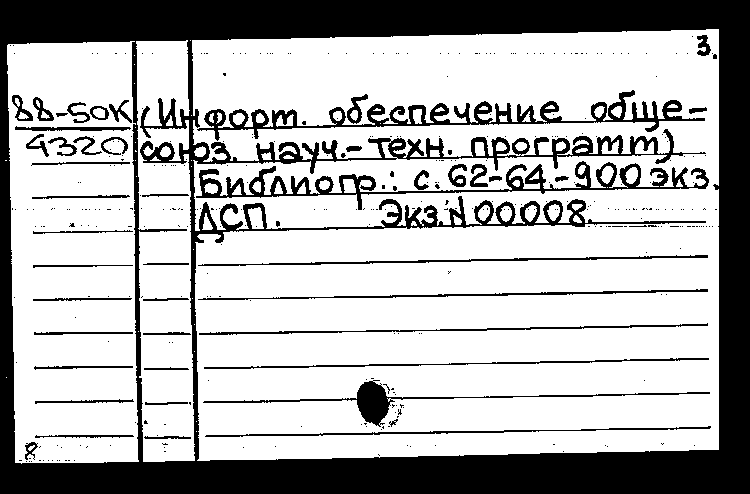 3.
88-50К (Информ. обеспечение обще-
4320 союз. науч.-техн. программ)
Библиогр.: с. 62-64.-900 экз.
ДСП. Экз. N 00008.
8